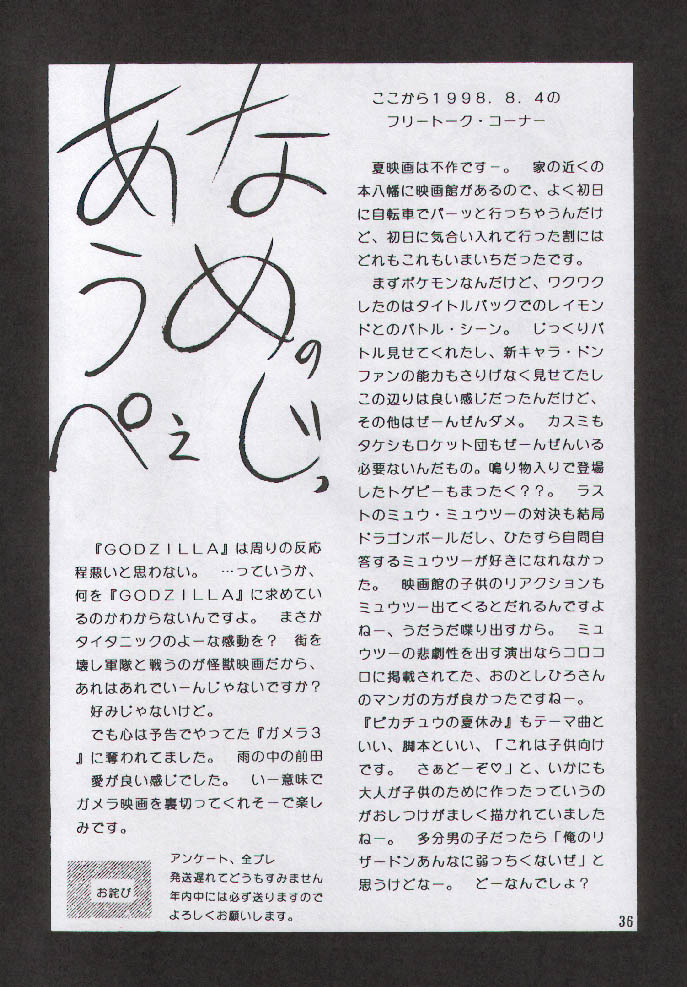 あな
うめの
ぺぇじっ
ここから1998.8.4の
フリートーク・コーナー
夏映画は不作ですー。 家の近くの
本八幡に映画館があるので、よく初日
に自転車でパーッと行っちゃうんだけ
ど、初日に気合い入れて行った割には
どれもこれもいまいちだったです。
まずポケモンなんだけど、ワクワク
したのはタイトルバックでのレイモン
ドとのバトル・シーン。 じっくりバ
トル見せてくれたし、新キャラ・ドン
ファンの能力もさりげなく見せてたし
この辺りは良い感じだったんだけど、
その他はぜーんぜんダメ。 カスミも
タケシもロケット団もぜーんぜんいる
必要ないんだもの。鳴り物入りで登場
したトゲピーもまったく??。 ラス
トのミュウ・ミュウツーの対決も結局
ドラゴンボールだし、ひたすら自問自
答するミュウツーが好きになれなかっ
た。 映画館の子供のリアクションも
ミュウツー出てくるとだれるんですよ
ねー、うだうだ喋り出すから。 ミュ
ウツーの悲劇性を出す演出ならコロコ
ロに掲載されてた、おのとしひろさん
のマンガの方が良かったですねー。
『ピカチュウの夏休み』もテーマ曲と
いい、脚本といい、「これは子供向け
です。 さぁどーぞ♡」と、いかにも
大人が子供のために作ったっていうの
がおしつけがましく描かれていました
ねー。 多分男の子だったら「俺のリ
ザードンあんなに弱っちくないぜ」と
思うけどなー。 どーなんでしょ?
『GODZILLA』は周りの反応
程悪いと思わない。 …っていうか、
何を『GODZILLA』に求めてい
るのかわからないんですよ。 まさか
タイタニックのよーな感動を? 街を
壊し軍隊と戦うのが怪獣映画だから、
あれはあれでいーんじゃないですか?
好みじゃないけど。
でも心は予告でやってた『ガメラ3
』に奪われてました。 雨の中の前田
愛が良い感じでした。 いー意味で
ガメラ映画を裏切ってくれそーで楽し
みです。
お詫び
アンケート、全プレ
発送遅れてどうもすみません
年内中には必ず送りますので
よろしくお願いします。
36